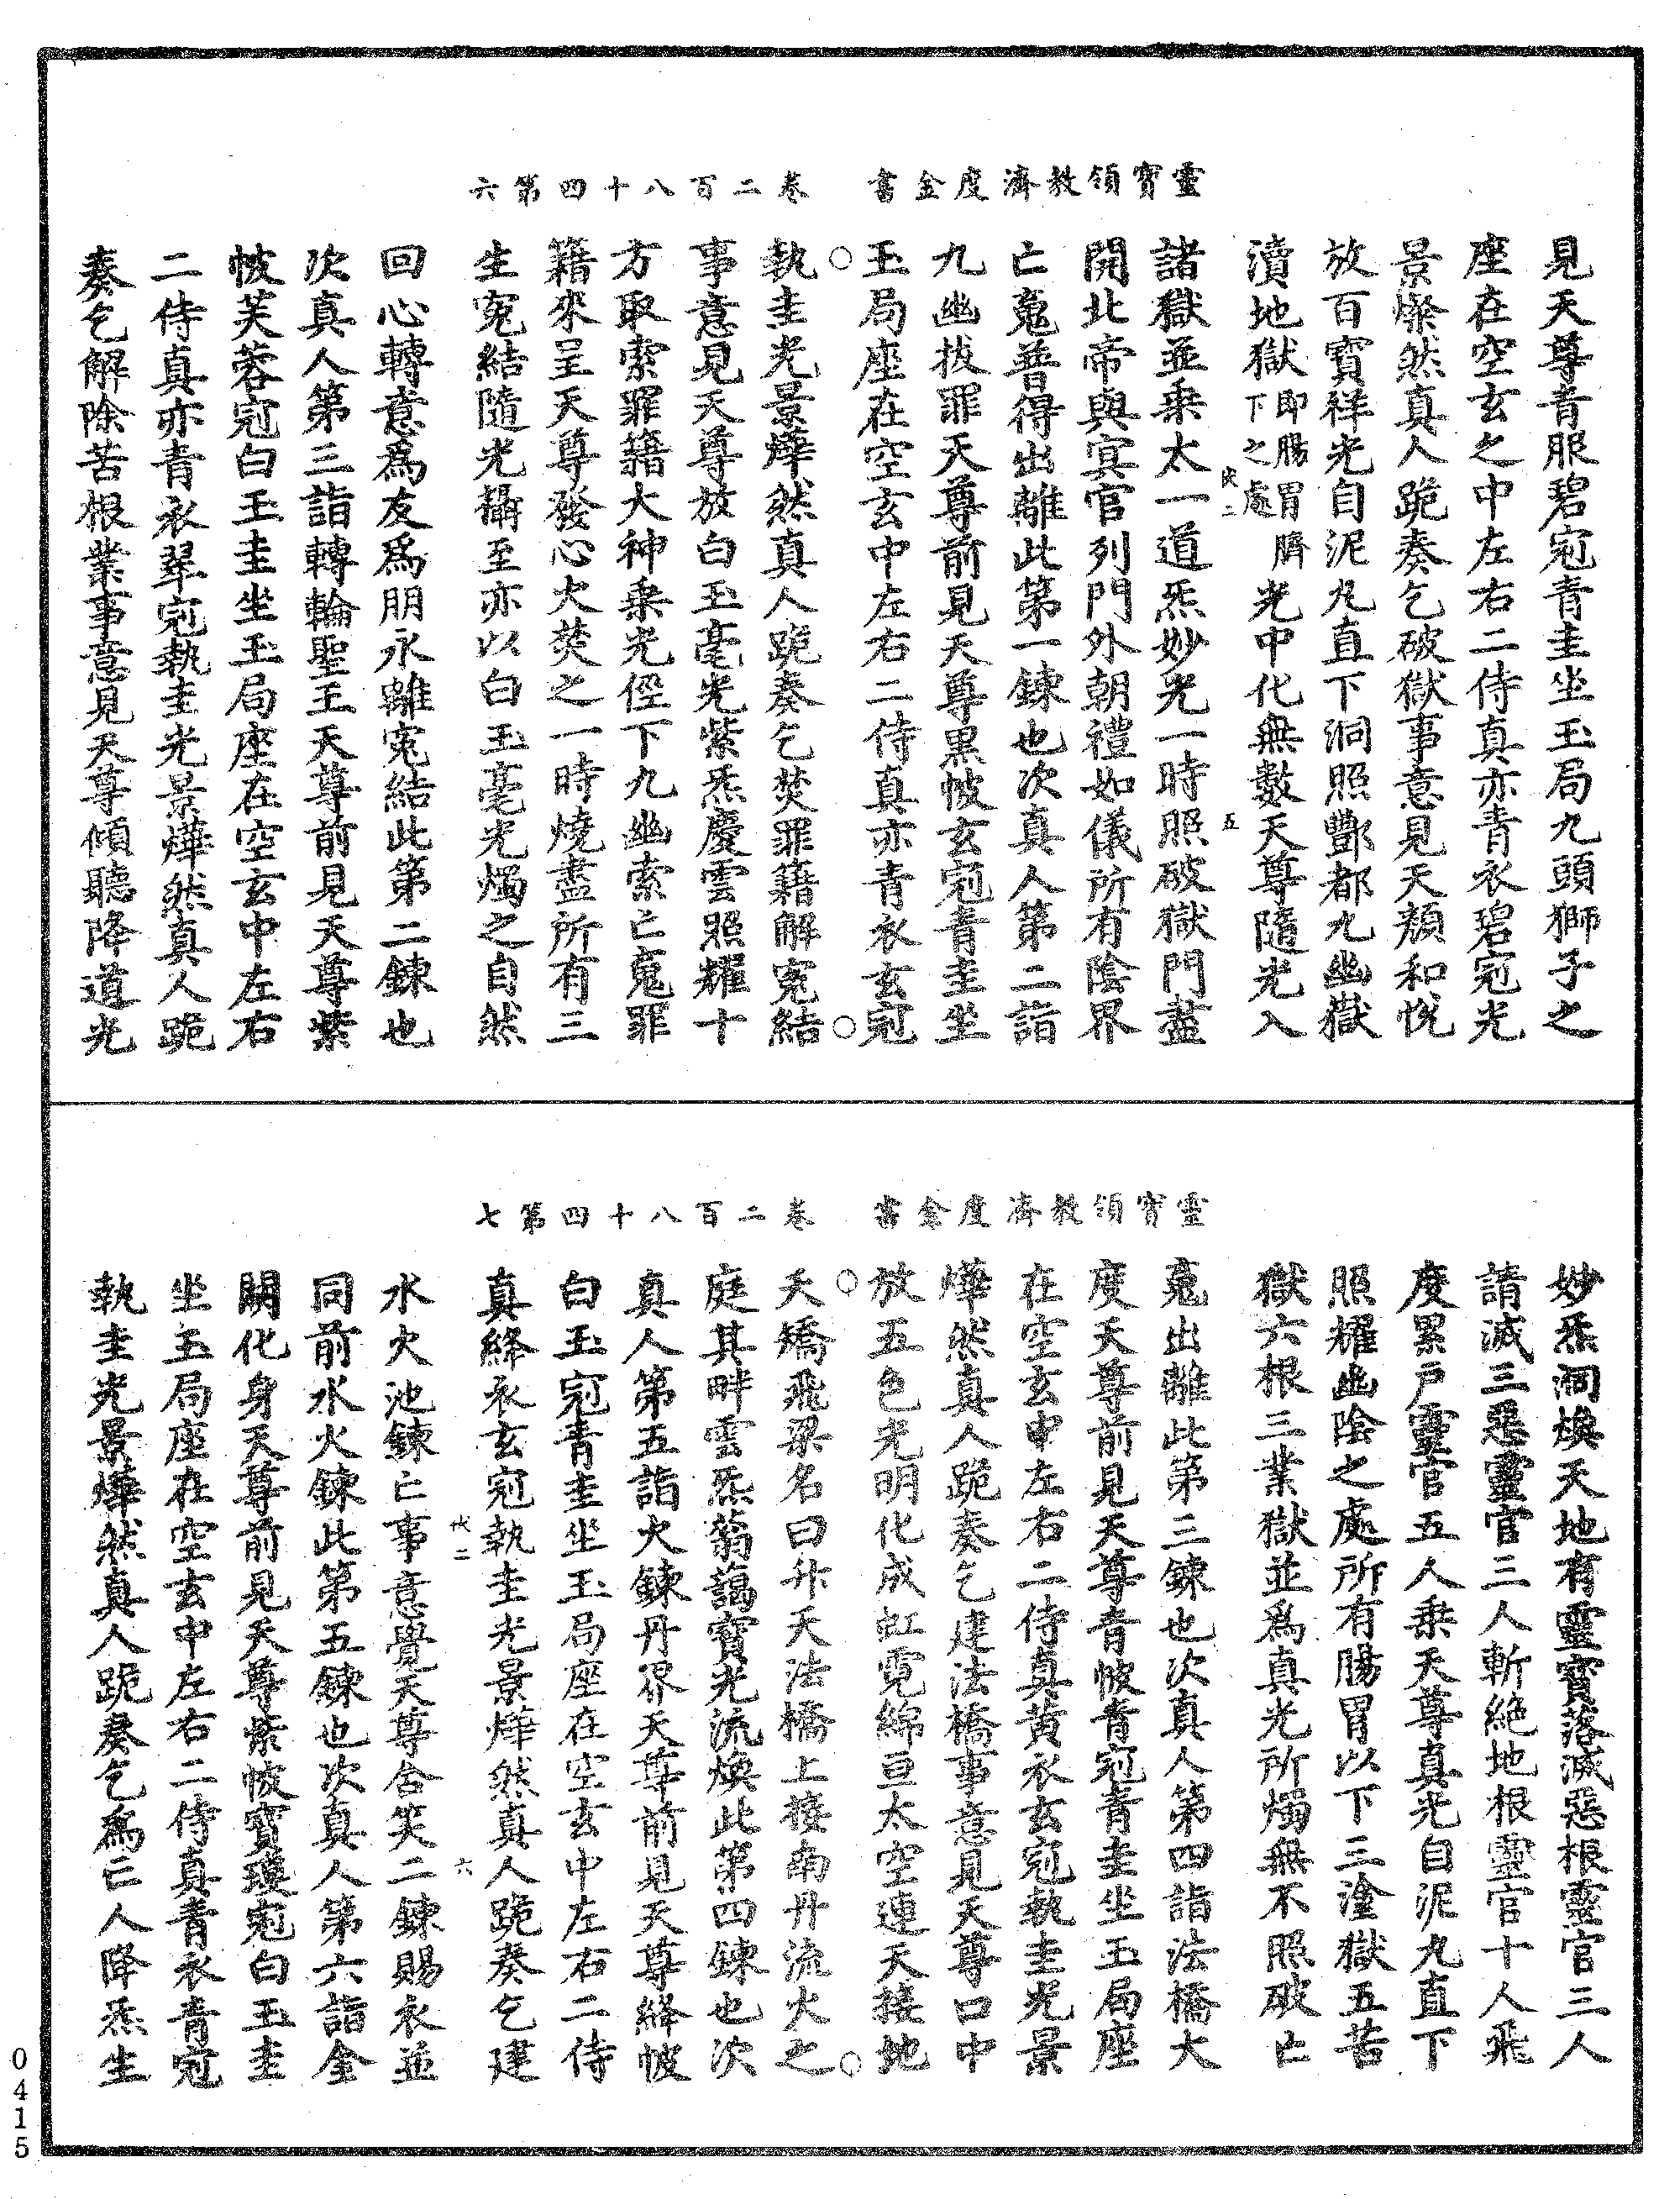 靈寶領教濟度金書　卷二百八十四第六
見天尊青服碧冠青圭坐玉局九頭獅子之
座在空玄之中左右二侍真亦青衣碧冠光
景燦然真人跪奏乞破獄事意見天顏和悅
放百寶祥光自泥丸直下洞照酆都九幽獄
瀆地獄即腸胃臍下之處光中化無數天尊隨光入
帙二　五
諸獄並乘太一道炁妙光一時照破獄門盡
開北帝與冥官列門外朝禮如儀所有陰界
亡䰟普得出離此第一鍊也次真人第二詣
九幽拔罪天尊前見天尊黑帔玄冠青圭坐
玉局座在空玄中左右二侍真亦青衣玄冠
執圭光景燁然真人跪奏乞焚罪籍解冤結
事意見天尊放白玉毫光紫炁慶雲照耀十
方取索罪籍大神乘光徑下九幽索亡䰟罪
籍來呈天尊發心火焚之一時燒盡所有三
生冤結隨光攝至亦以白玉毫光燭之自然
回心轉意爲友爲朋永離冤結此第二鍊也
次真人第三詣轉輪聖王天尊前見天尊紫
帔芙蓉冠白玉圭坐玉局座在空玄中左右
二侍真亦青衣翠冠執圭光景燁然真人跪
奏乞解除苦根業事意見天尊傾聽降道光
靈寶領教濟度金書　卷二百八十四第七
妙炁洞煥天地有靈寶落滅惡根靈官三人
請滅三惡靈官三人斬絕地根靈官十人飛
度累戸靈官五人乘天尊真光自泥丸直下
照耀幽陰之處所有腸胃以下三塗獄五苦
獄六根三業獄並爲真光所燭無不照破亡
䰟出離此第三鍊也次真人第四詣法橋大
度天尊前見天尊青帔青冠青圭坐玉局座
在空玄中左右二侍真黃衣玄冠執圭光景
燁然真人跪奏乞建法橋事意見天尊口中
放五色光明化成虹霓綿亘太空連天接地
夭矯飛梁名曰升天法橋上接南丹流火之
庭其畔雲炁蓊藹寶光流煥此第四鍊也次
真人第五詣火鍊丹界天尊前見天尊絳帔
白玉冠青圭坐玉局座在空玄中左右二侍
真絳衣玄冠執圭光景燁然真人跪奏乞建
帙二　六
水火池鍊亡事意覺天尊含笑二鍊賜衣並
同前水火鍊此第五鍊也次真人第六詣金
闕化身天尊前見天尊紫帔寶璪冠白玉圭
坐玉局座在空玄中左右二侍真青衣青冠
執圭光景燁然真人跪奏乞爲亡人降炁生
0415